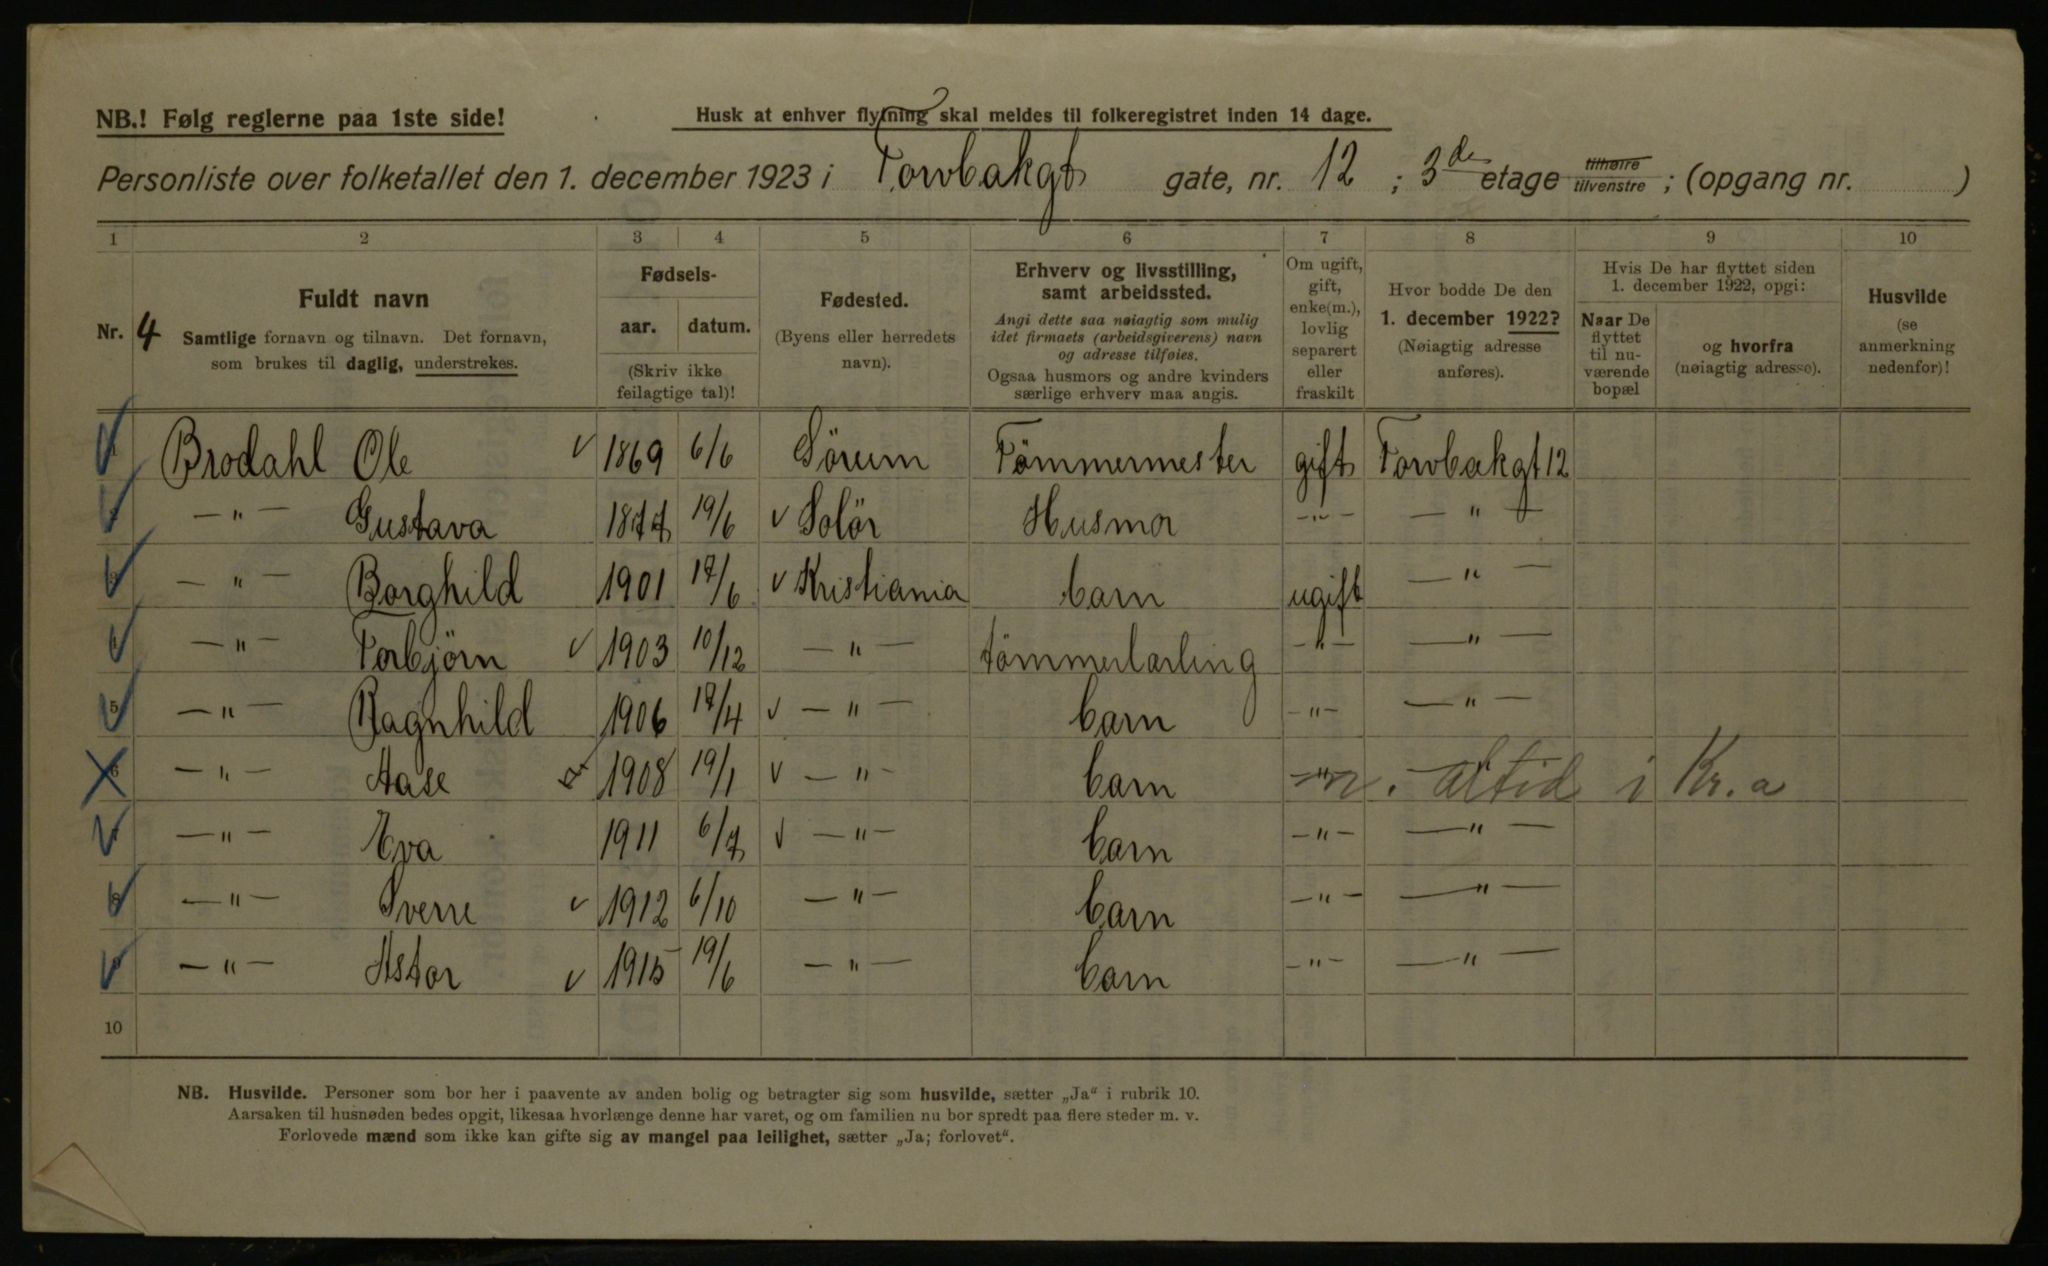 NB.! Følg reglerne paa 1ste side!
Husk at enhver flytning skal meldes til folkeregistret inden 14 dage.
Personliste over folketallet den 1. december 1923 i Torvbakgt gate, nr. 12 ; 3de etage tilhøire tilvenstre ; (opgang nr. )
1 2 3 4 5 6 7 8 9 10
Nr. 4
Fuldt navn
Samtlige fornavn og tilnavn. Det fornavn,
som brukes til daglig, understrekes.
Fødsels-
aar. datum.
(Skriv ikke
feilagtige tal)!
Fødested.
(Byens eller herredets
navn).
Erhverv og livsstilling,
samt arbeidssted.
Angi dette saa nøiagtig som mulig
idet firmaets (arbeidsgiverens) navn
og adresse tilføies.
Ogsaa husmors og andre kvinders
særlige erhverv maa angis.
Om ugift,
gift,
enke(m.),
lovlig
separert
eller
fraskilt
Hvor bodde De den
1. december 1922?
(Nøiagtig adresse
anføres).
Hvis De har flyttet siden
1. december 1922, opgi:
Naar De
flyttet
til nu-
værende
bopæl
og hvorfra
(nøiagtig adresse).
Husvilde
(se
anmerkning
nedenfor)!
Brodahl Ole 1869 6/6 Sörum Tömmermester gift Torvbakgt 12
2 — " — Gustava 1877 19/6 Solör Husmor — " — — " —
3 — " — Borghild 1901 17/6 Kristiania barn ugift — " —
4 — " — Torbjörn 1903 10/12 — " — tömmerlarling — " — — " —
5 — " — Ragnhild 1906 17/4 — " — barn — " — — " —
6 — " — Aase 1908 19/1 — " — barn — " — altid i Kr.a
— " — Eva 1911 6/7 — " — barn — " — — " —
8 — " — Sverre 1912 6/10 — " — barn — " — — " —
— " — Astor 1915 19/6 — " — barn — " — — " —
10
NB. Husvilde. Personer som bor her i paavente av anden bolig og betragter sig som husvilde, sætter „Ja“ i rubrik 10.
Aarsaken til husnøden bedes opgit, likesaa hvorlænge denne har varet, og om familien nu bor spredt paa flere steder m. v.
Forlovede mænd som ikke kan gifte sig av mangel paa leilighet, sætter „Ja; forlovet“.